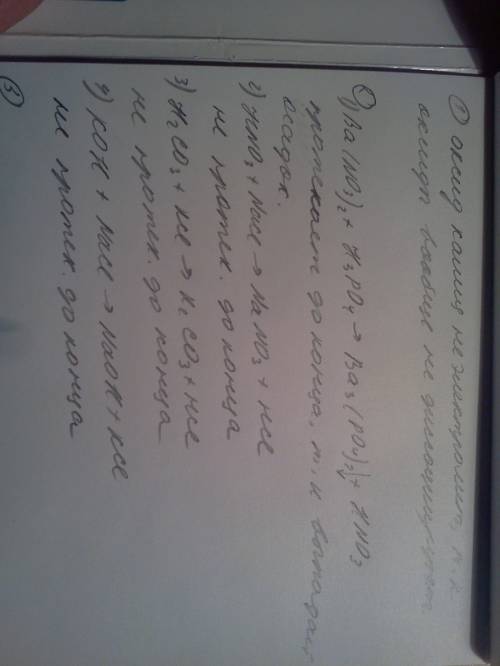 ① оксид калия не электролит, т.к.
оксиды вообще не диссоциируют
②1) Ba(NO3)2 + H3PO4 → Ba3(PO4)2↓ + HNO3
протекает до конца, т.к выпадает
осадок.
2) HNO3 + NaCl → NaNO3 + HCl
не протек. до конца
3) H2CO3 + KCl → K2CO3 + HCl
не протек. до конца
4) KOH + NaCl → NaOH + KCl
не протек. до конца
③